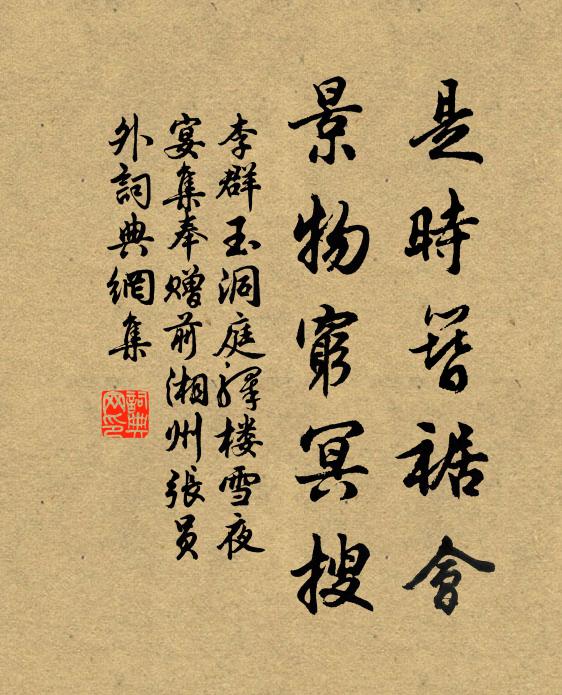 是時簪裾會
景物窮冥搜
李群玉洞庭驛楼雪夜
宴集奉赠前湘州張員
外詞典網集
詞典網印